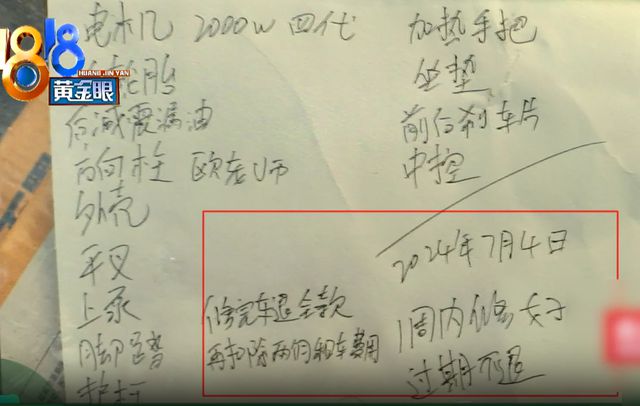 电机 2000w 四代
加热手把
1818
HUANG JIN YAN
黄金眼
轮胎
坐垫
后减震漏油
前后刹车片
方向柱
中控
外壳
平叉
2024年7月4日
上泵
修完车退全款
1周内修好
脚踏
再扣除两月租车费用
过期不退